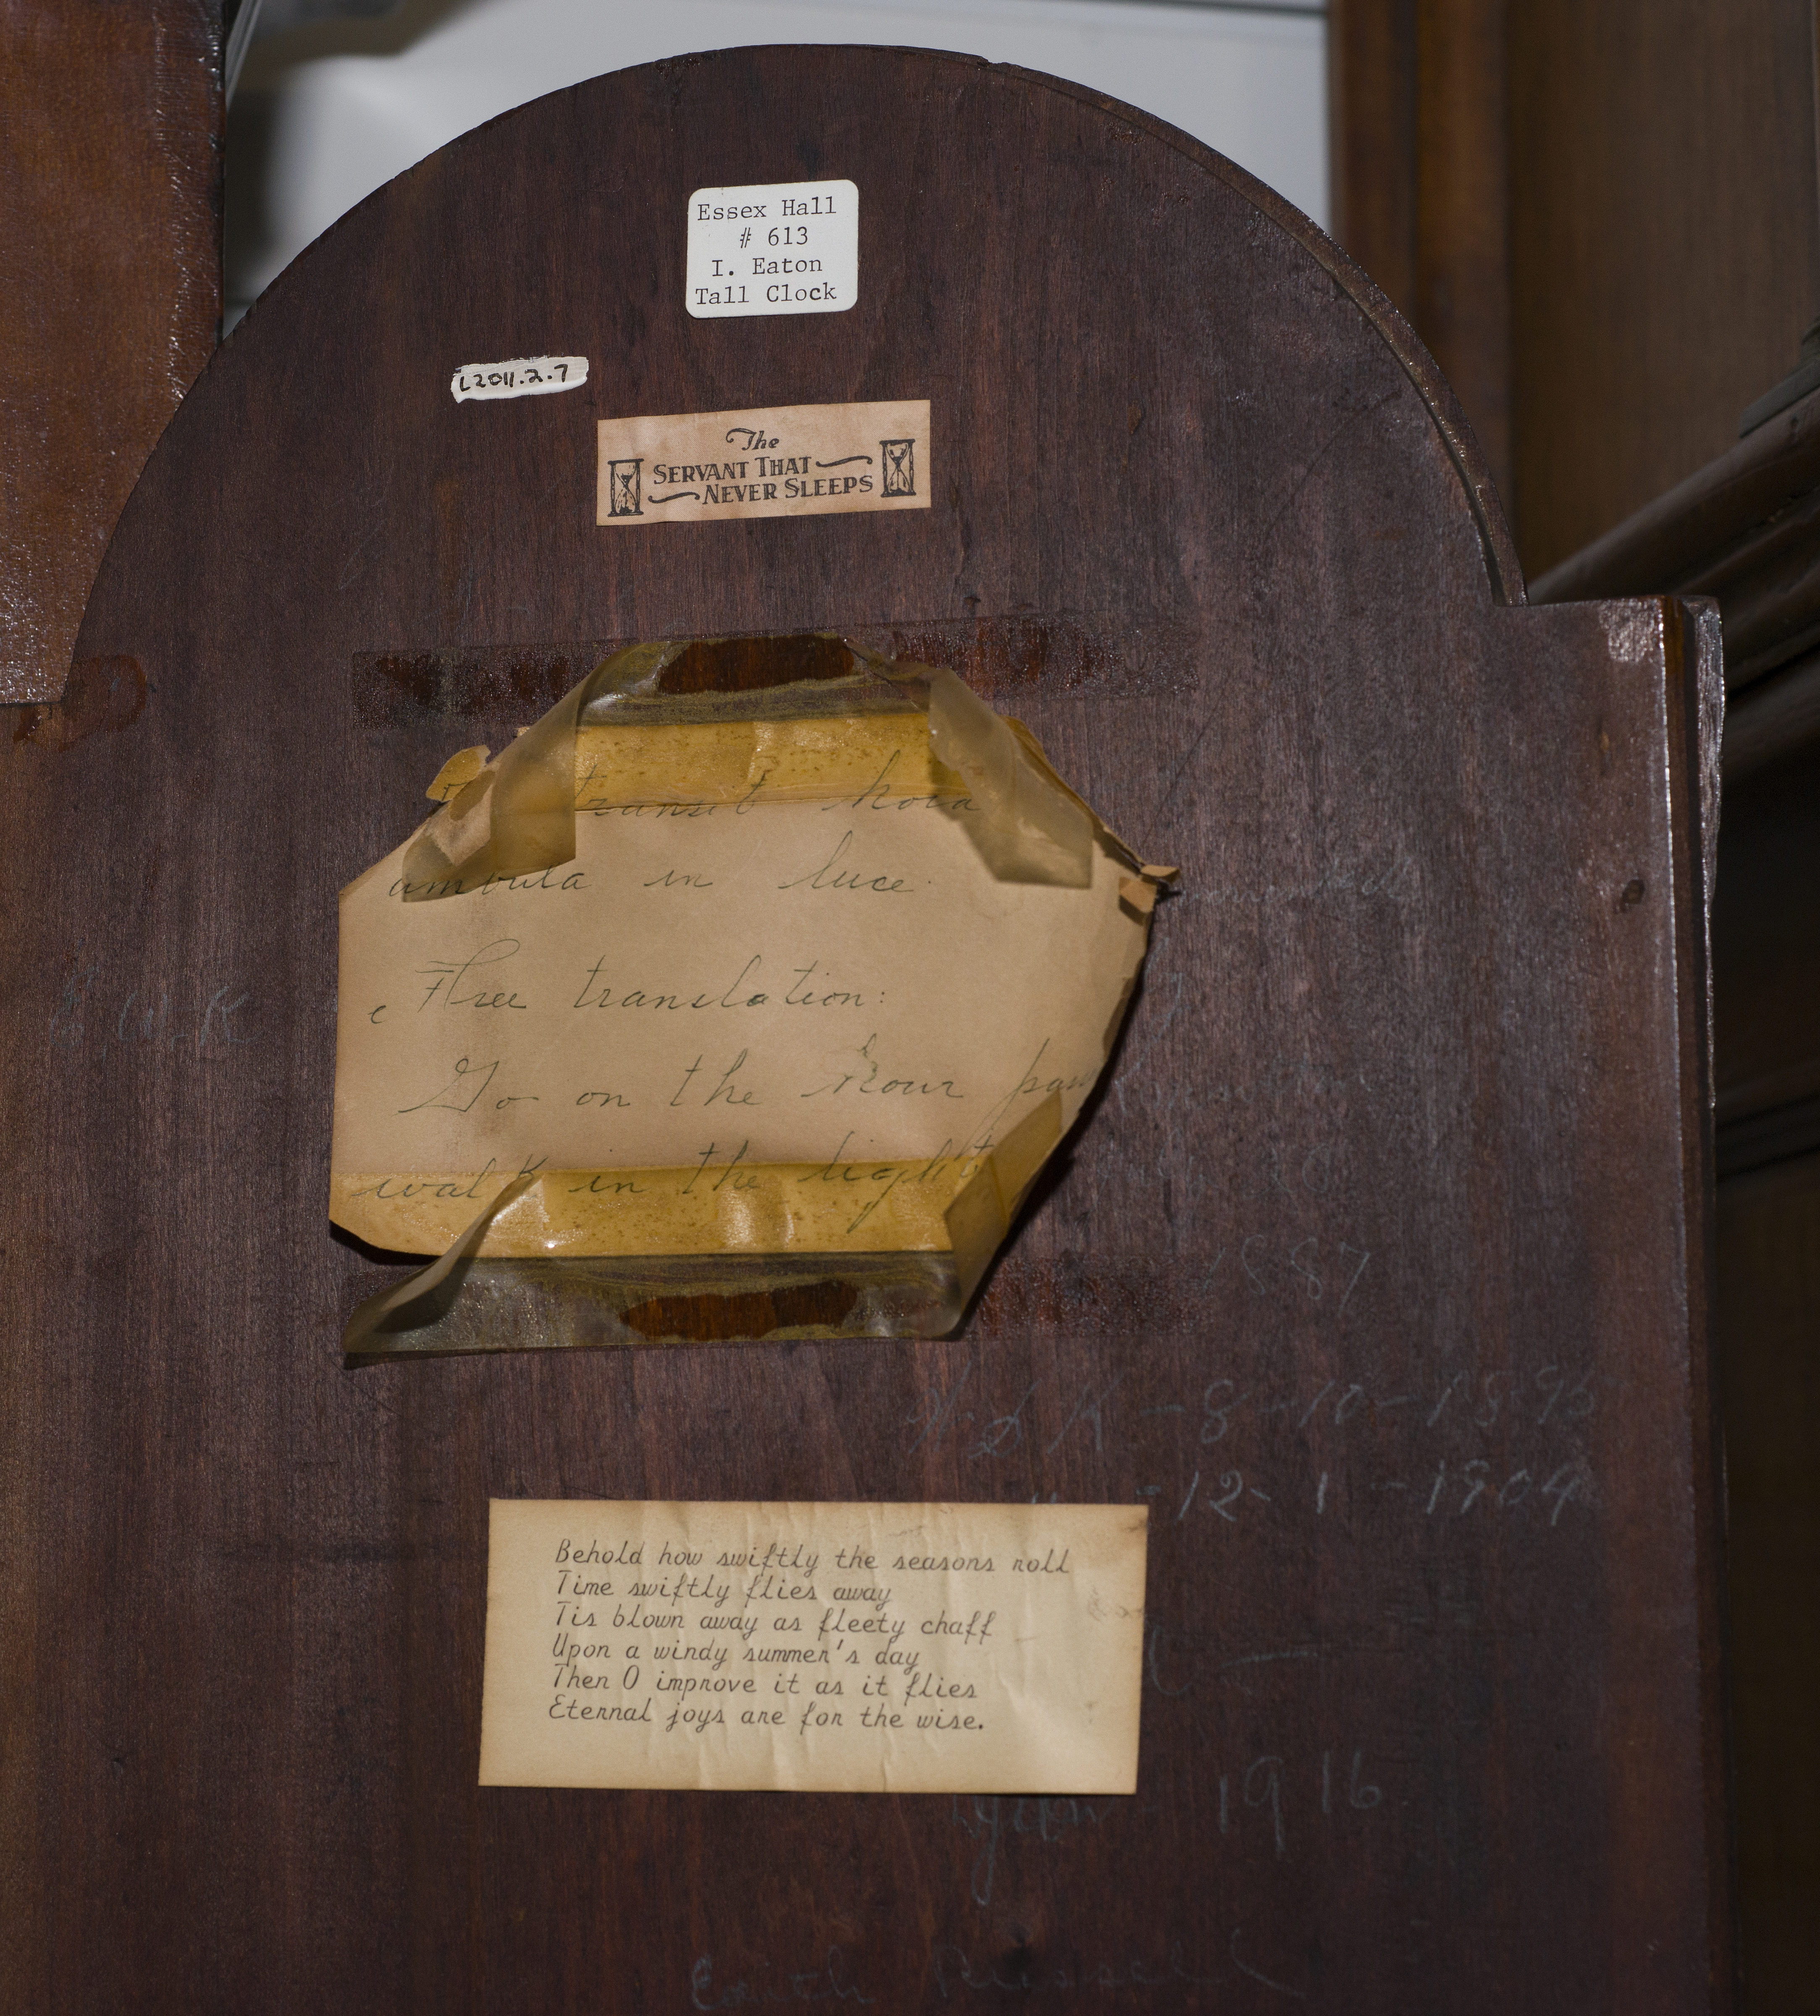 Essex Hall
# 613
I. Eaton
Tall Clock
L2011.2.7
The
SERVANT THAT
NEVER SLEEPS
transit hora
ambula in luce.
Free translation:
Go on the hour
walk in the light
1887
K - 8 - 10 - 1896
" - 12 - 1 - 1904
Behold how swiftly the seasons roll
Time swiftly flies away
Tis blown away as fleety chaff
Upon a windy summer's day
Then O improve it as it flies
Eternal joys are for the wise.
1916
Russell